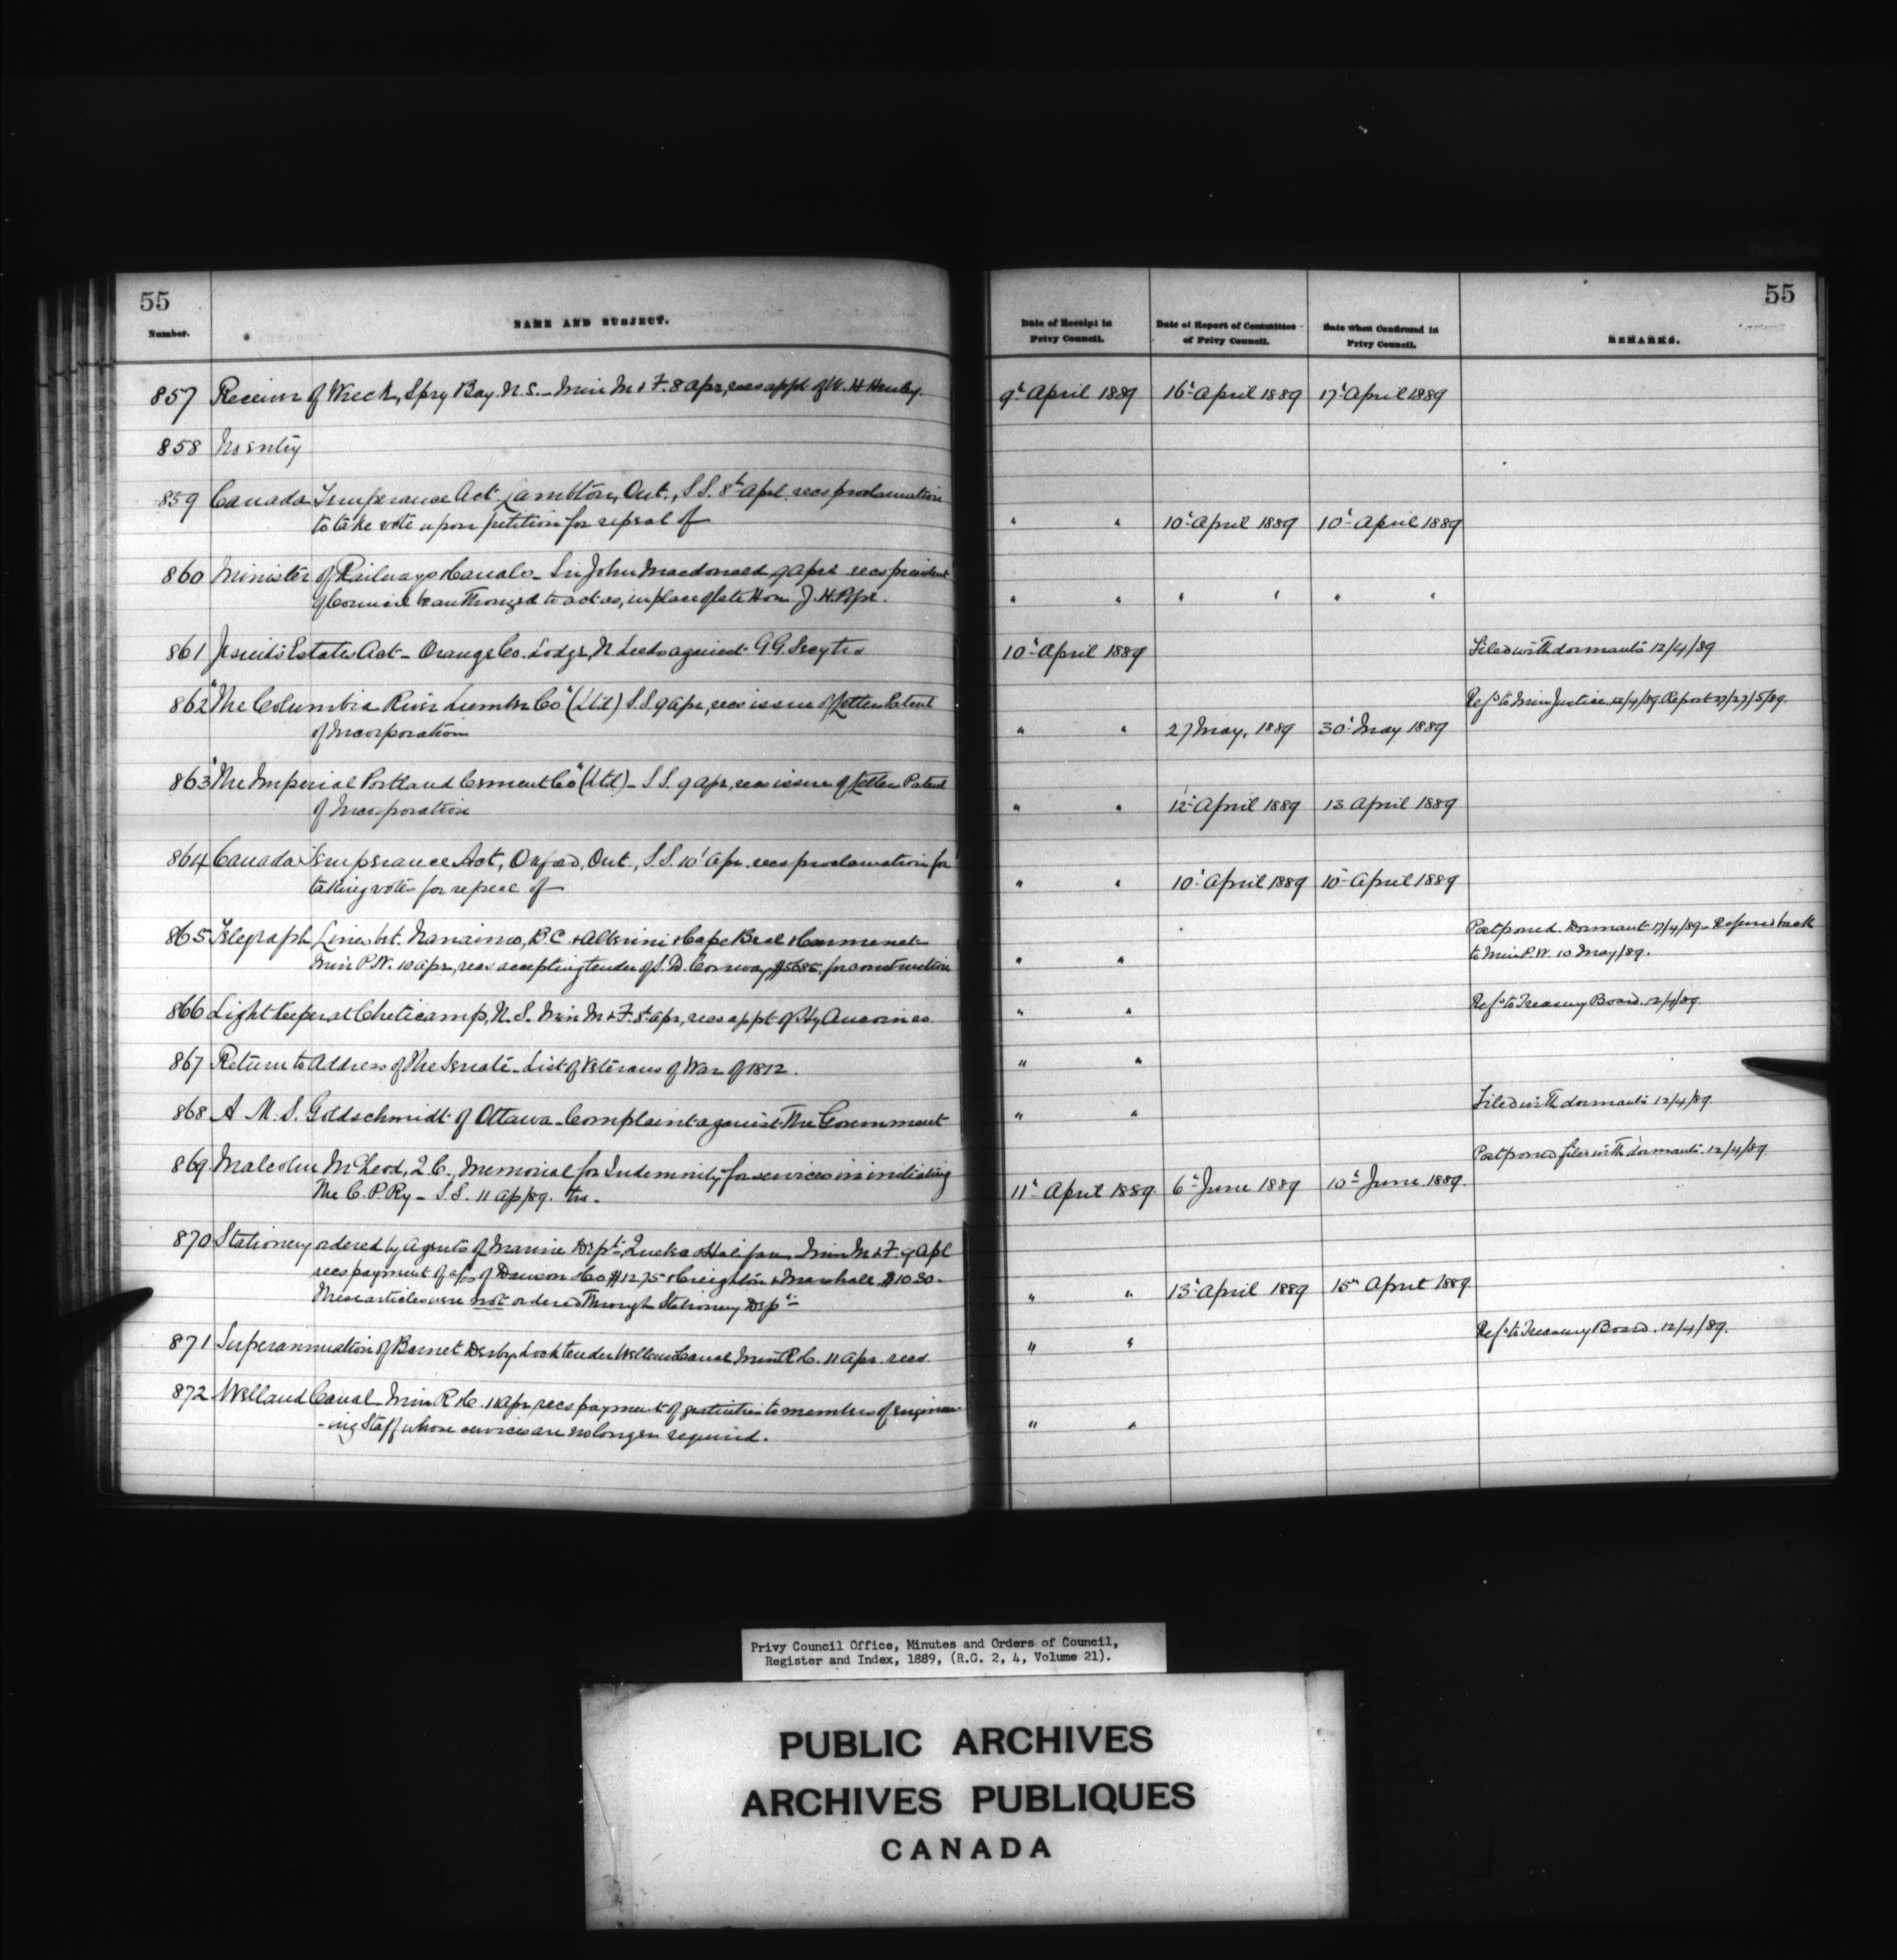 55
Number.
NAME AND SUBJECT.
Date of Receipt in Privy Council.
Date of Report of Committee of Privy Council.
Date when Confirmed in Privy Council.
REMARKS.
55
857 Receiver of Wreck, Spry Bay. N.S. - Min M & F. 8 apr, recs appt of W. H Henley. 9t April 1889 16t April 1889 17t April 1889
858 No entry
859 Canada Temperance Act Lambton, Ont., S.S. 8th Apl. recs proclamation
to take vote upon petition for repeal of " " 10t April 1889 10t April 1889
860 Minister of Railways & Canals - Sir John Macdonald 9 Apl recs president
of Council be authorized to act as, in place of late Hon J. H. Pope. " " " " " "
861 Jesuits Estates Act - Orange Co. Lodge, N Leeds against. G G Secy trs 10t April 1889 Filed with dormants 12/4/89
862 "The Columbia River Lumber Co" (Ltd) S.S. 9 apr, recs issue of Letters Patent Refd to Min Justice 12/4/89 Report 27/5/89.
of Incorporation " " 27 May, 1889 30t May 1889
863 "The Imperial Portland Cement Co" (Ltd) - S.S. 9 apr, recs issue of Letters Patent
of Incorporation " " 12t April 1889 13 April 1889
864 Canada Temperance Act, Oxford, Ont., S.S. 10t apr. recs proclamation for
taking votes for repeal of " " 10t April 1889 10t April 1889
865 Telegraph Lines bt. Nanaimo, B.C. & Alberini & Cape Beal & Postponed. Dormant 17/4/89 - Referred back
Min P.W. 10 apr, recs accepting tender of S. D. Conway, $5685. for construction " " to Min P.W. 10 May/89.
866 Light keeper at Cheticamp, N.S. Min M & F. 8t apr, recs appt of Hy Aucoin as. " " Refd to Treasury Board. 12/4/89.
867 Return to Address of the Senate - List of Veterans of War of 1812. " "
868 A. M. S. Goldschmidt of Ottawa - Complaint against the Government " " Filed with dormants 12/4/89.
869 Malcolm McLeod, Q.C., Memorial for Indemnity for services in initiating Postponed filed with dormants. 12/4/89.
the C. P. Ry - S.S. 11 ap/89. trs. 11t April 1889. 6t June 1889 10t June 1889.
870 Stationery ordered by Agents of Marine Dept, Quebec & Halifax Min M & F. 9 Apl
recs payment of a/cs of Dawson & Co $12.75 & Creighton & Marshall $10.30.
These articles were not ordered through Stationery Dept " " 13t April 1889 15th April 1889
871 Superannuation of Barnet Derby Lock tender Welland Canal Min R. C. 11 Apr. recs. " " Refd to Treasury Board. 12/4/89.
872 Welland Canal - Min R & C. 11 Apr, recs payment of gratuities to members of engineer-
-ing Staff whose services are no longer required. " "
Privy Council Office, Minutes and Orders of Council,
Register and Index, 1889, (R.G. 2, 4, Volume 21).
PUBLIC ARCHIVES
ARCHIVES PUBLIQUES
CANADA